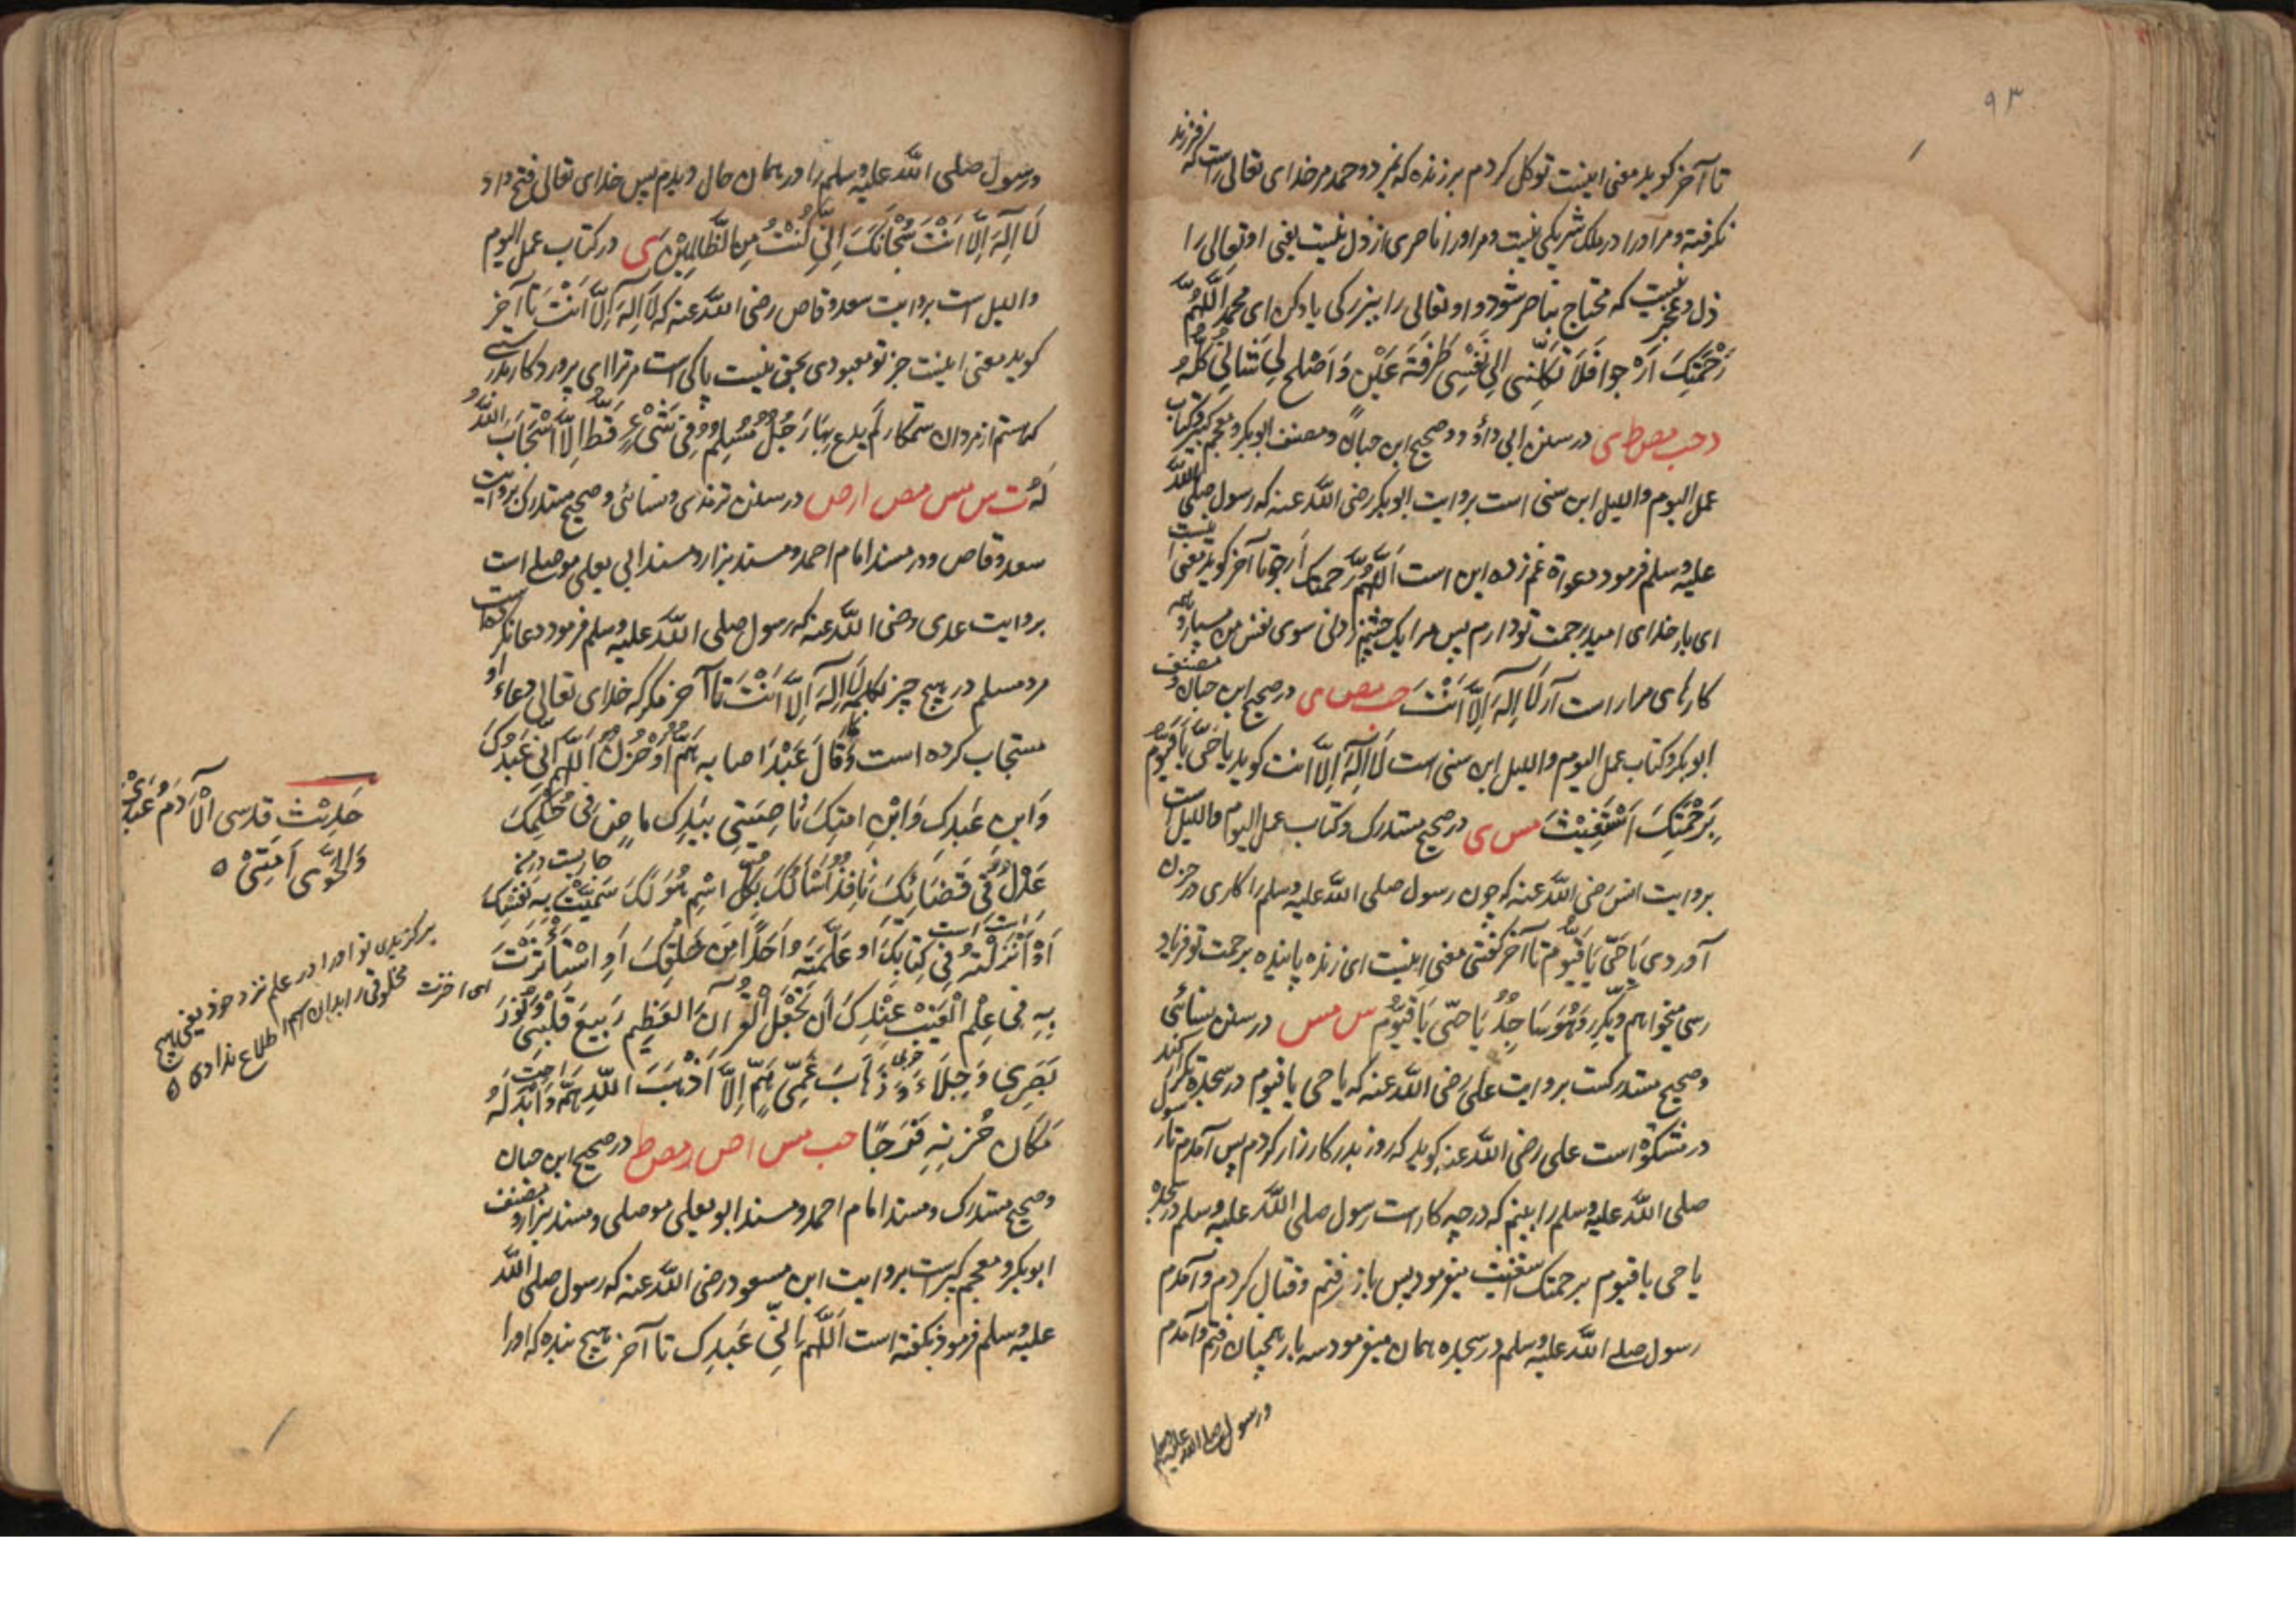 ۹۳
تا آخر کوید معنی اینست توکل کردم بر زنده که نمیرد و حمد مر خدای تعالی راست که فرزند
نکرفته و مر او را در ملک شریکی نیست و مر او را ناصری از ذل نیست یعنی او تعالی را
ذل و عجز نیست که محتاج بناصر شود و او تعالی را ببزرکی یاد کن ای محمد اَللّٰهُمَّ
رَحْمَتِكَ اَرْجوا فَلَا تَكِلْنِی اِلٰی نَفْسِی طَرْفَةَ عَیْنٍ وَاَصْلِح لِی شَانِی كُلَّهُ
د حب مص ط ی در سنن ابی داؤد و صحیح ابن حبان و مصنف ابو بکر و معجم کبیر و کتاب
عمل الیوم واللیل ابن سنی است بروایت ابو بکر رضی اللّٰه عنه که رسول صلی اللّٰه
علیه وسلم فرمود دعواة غم زده این است اَللّٰهُمَّ رَحمتک اَرجو تا آخر کوید معنی اینست
ای بار خدای امید برحمت تو دارم پس مرا یک چشم زدنی سوی نفس من مسپار و همه
کارهای مرا راست آر لَا اِلٰهَ اِلَّا اَنْتَ حب مص ی در صحیح ابن حبان و مصنف
ابو بکر و کتاب عمل الیوم واللیل ابن سنی است لَا اِلٰهَ اِلَّا انت کوید یَاحَیُّ یَاقَیُّومُ
بِرَحْمَتِكَ اَسْتَغِیْثُ مس ی در صحیح مستدرک و کتاب عمل الیوم واللیل است
بروایت انس رضی اللّٰه عنه که چون رسول صلی اللّٰه علیه وسلم را کاری در حزن
آوردی یَاحَیُّ یَاقَیُّومُ تا آخر کفتی معنی اینست ای زنده پاینده برحمت تو فریاد
رسی میخواهم وَیُکَرِّرُ وَهُوَ سَاجِدٌ یَاحَیُّ یَاقَیُّومُ س مس در سنن نسائی
و صحیح مستدرکست بروایت علی رضی اللّٰه عنه که یا حی یا قیوم در سجده تکرار کند
در مشکوٰة است علی رضی اللّٰه عنه کوید که روز بدر کارزار کردم پس آمدم تا رسول
صلی اللّٰه علیه وسلم را ببینم که در چه کار است رسول صلی اللّٰه علیه وسلم در سجده
یا حی یا قیوم برحمتک استغیث میفرمود پس باز رفتم و قتال کردم و آمدم
رسول صلی اللّٰه علیه وسلم در سجده همان میفرمود سه بار همچنان رفتم و آمدم
و رسول صلی اللّٰه علیه وسلم
و رسول صلی اللّٰه علیه وسلم را در همان حال دیدم پس خدای تعالی فتح داد
لَا اِلٰهَ اِلَّا اَنْتَ سُبْحَانَكَ اِنِّی كُنْتُ مِنَ الظَّالِمِیْنَ ی در کتاب عمل الیوم
واللیل است بروایت سعد وقاص رضی اللّٰه عنه که لَا اِلٰهَ اِلَّا اَنْتَ تا آخر
کوید معنی اینست جز تو معبودی بحق نیست پاکی است مر ترا ای پروردکار بدرستی
که هستم از مردان ستمکار لَم یدع بِهَا رَجُلٌ مُسْلِمٌ فِی شَیْءٍ قَطُّ اِلَّا اسْتَجَابَ اللّٰهُ
لَهُ ت س مس مص ا ر ص در سنن ترمذی و نسائی و صحیح مستدرک بروایت
سعد وقاص و در مسند امام احمد و مسند بزار و مسند ابی یعلی موصلی است
بروایت عدی رضی اللّٰه عنه که رسول صلی اللّٰه علیه وسلم فرمود دعا نکرده است
مرد مسلم در هیچ چیز بکلمه لَا اِلٰهَ اِلَّا اَنْتَ تا آخر مکر که خدای تعالی دعاء او
مستجاب کرده است وَ قَالَ عَبْدٌ اصابه هَمٌّ اَوْ حُزْنٌ اَللّٰهُمَّ اِنِّی عَبْدُكَ
وَابنِ عَبدِكَ وَابْنِ امتِكَ نَاصِیَتِی بِیَدِكَ ماضٍ فِیَّ حُكْمُكَ
عَدْلٌ فِیَّ قَضَائُكَ نَافِذٌ اَسْأَلُكَ بِكُلِّ اسْمٍ هُوَ لَكَ سَمَّیْتَ بِهِ نَفْسَكَ
اَوْ اَنْزَلْتَهُ فِی كِتَابِكَ اَو عَلَّمْتَهُ اَحَدًا مِنَ خَلْقِكَ اَوِ اسْتَأْثَرْتَ
بِهِ فِی عِلْمِ الْغَیْبِ عِنْدَكَ اَن تَجْعَلَ الْقُرْآنَ العَظِیمَ رَبِیعَ قَلْبِی وَنُورَ
بَصَرِی وَجِلَاءَ حزنی وَذَهَابَ هَمِّی اِلَّا اَذْهَبَ اللّٰهُ هَمَّهُ وَاَبْدَلَهُ
مَكَانَ حُزْنِهِ فَرَجًا حب مس ا ص ر مص ط در صحیح ابن حبان
و صحیح مستدرک و مسند امام احمد و مسند ابو یعلی موصلی و مسند بزار و مصنف
ابو بکر و معجم کبیر است بروایت ابن مسعود رضی اللّٰه عنه که رسول صلی اللّٰه
علیه وسلم فرمود نکفته است اَللّٰهُمَّ اِنِّی عَبْدِكَ تا آخر هیچ بنده که او را
حَدِیْث قدسی اَلْآدَم عَبْدِی
وَالْحَوّٰی اَمَتِیْ ٥
برکزیدی تو او را در علم نزد خود یعنی هیچ
مخلوقی را بدان اسم اطلاع ندادی ٥